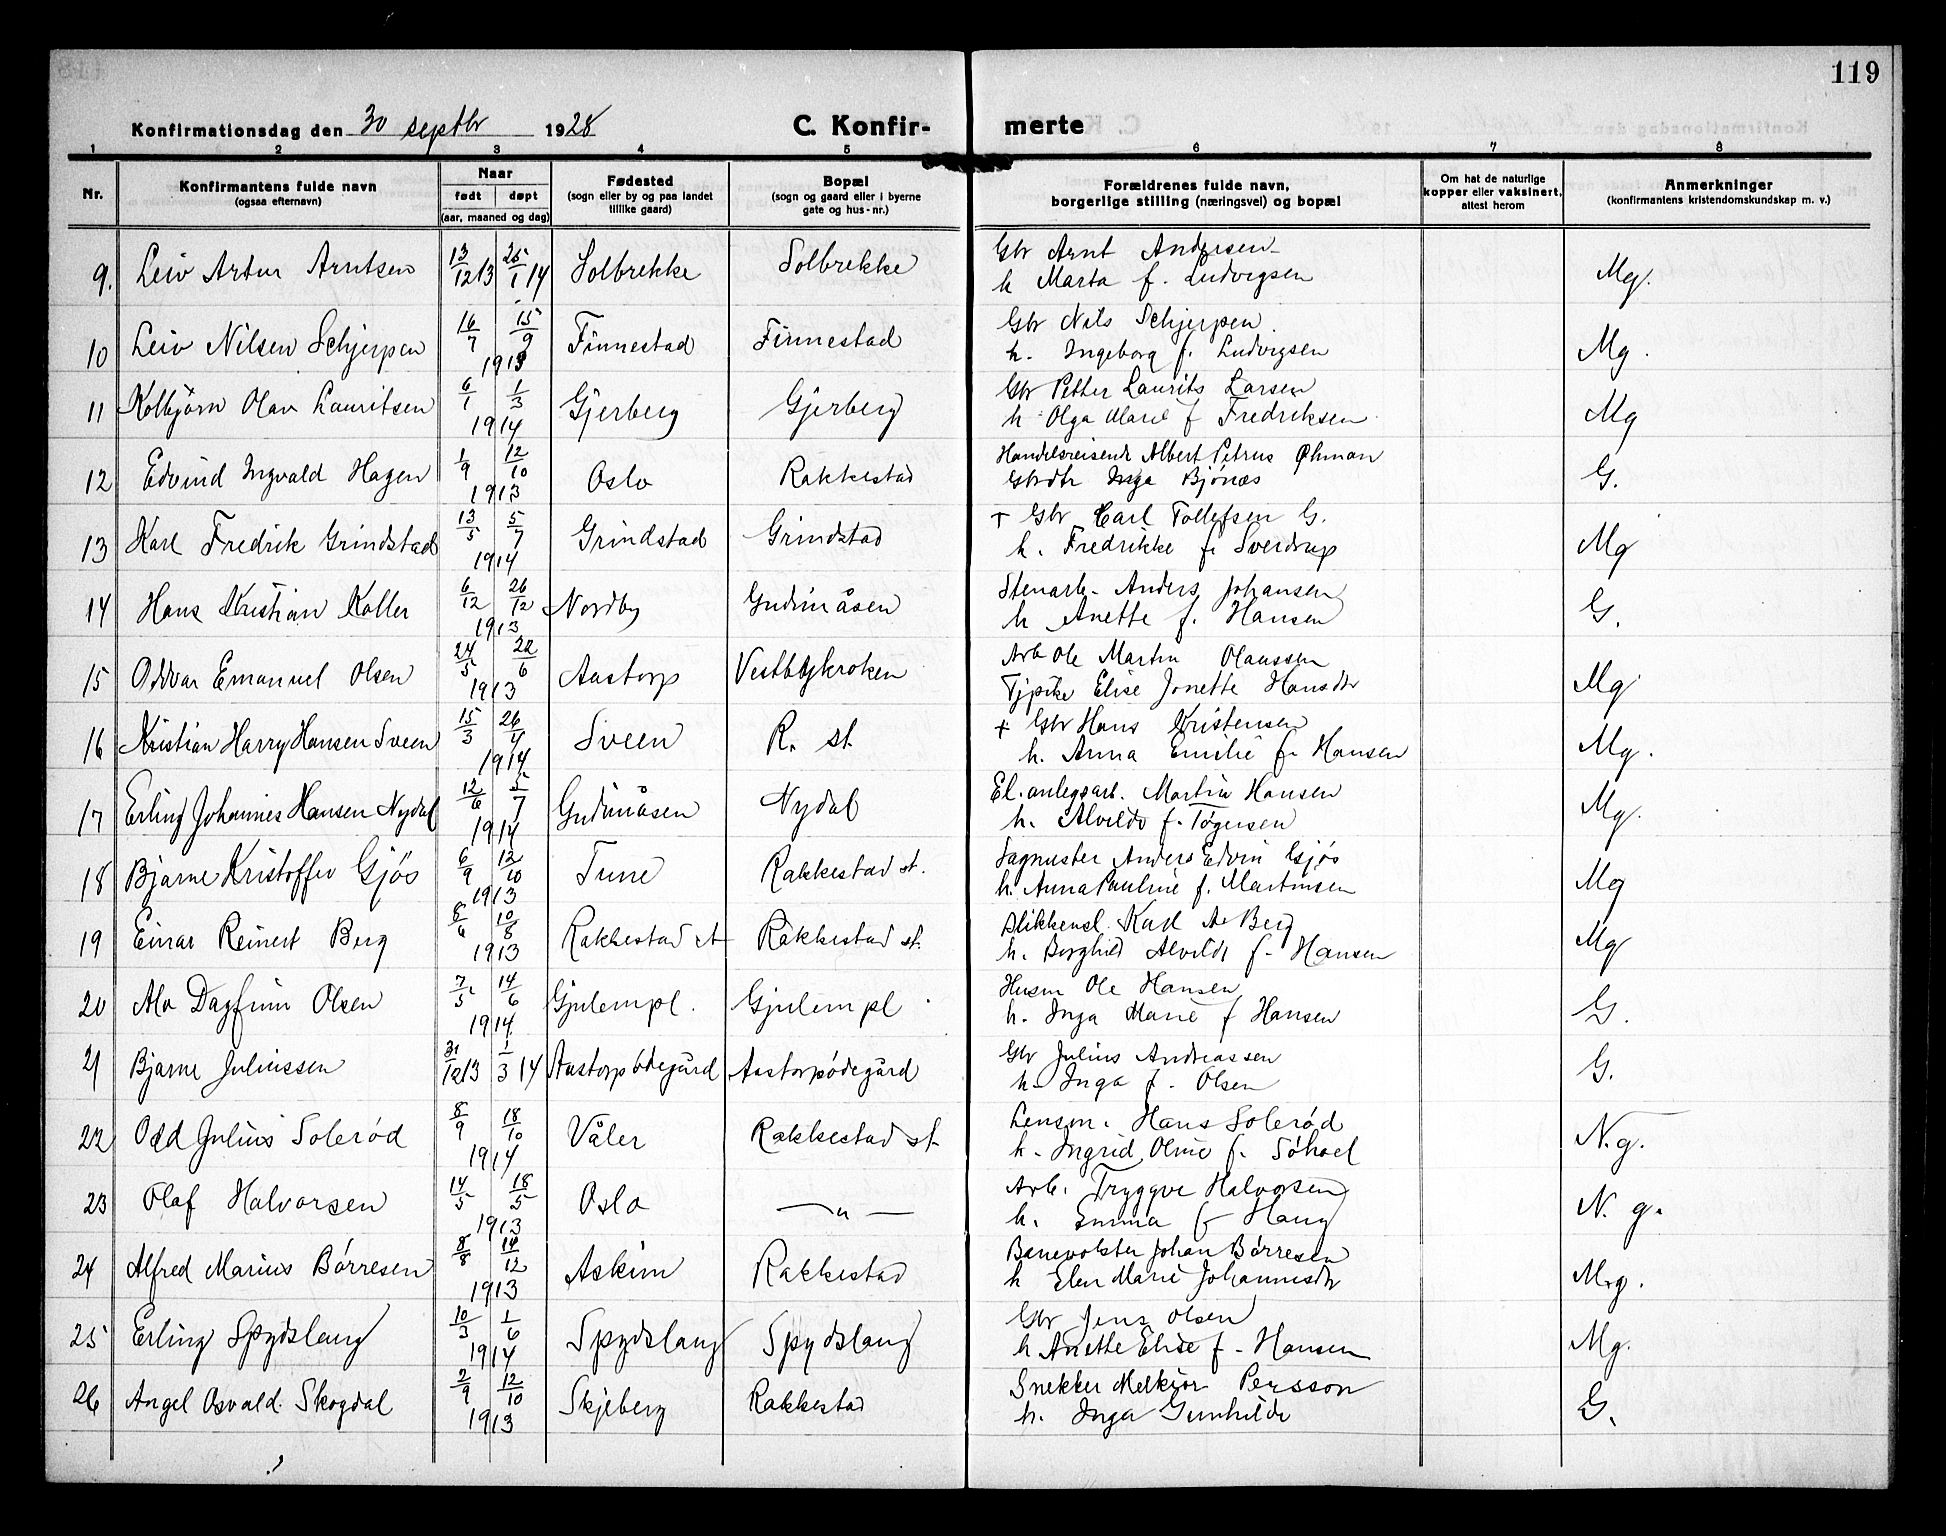 119
Konfirmationsdag den 30 septbr 1928 C. Konfir- merte
1 2 3 4 5 6 7 8
Nr. Konfirmantens fulde navn (ogsaa efternavn) Naar født døpt (aar, maaned og dag) Fødested (sogn eller by og paa landet tillike gaard) Bopæl (sogn og gaard eller i byerne gate og hus-nr.) Forældrenes fulde navn, borgerlige stilling (næringsvei) og bopæl Om hat de naturlige kopper eller vaksinert, attest herom Anmerkninger (konfirmantens kristendomskundskap m. v.)
9. Leiv Artur Arntsen 13/12 13 25/1 14 Solbrekke Solbrekke Gbr Arnt Andersen Mg.
h Marta f. Ludvigsen
10 Leiv Nilsen Schjerpen 16/7 15/9 1913 Finnestad Finnestad Gbr Nils Schjerpen. Mg.
h. Ingeborg f. Ludvigsen
11 Kolbjörn Olav Lauritsen 6/1 1/3 1914 Gjerberg Gjerberg Gbr Petter Laurits Larsen Mg
h Olga Marie f Fredriksen
12 Edvind Ingvald Hagen 1/9 12/10 1913 Oslo Rakkestad Handelsreisende Albert Petrus Øhman G.
Gbrdtr Inga Bjönæs
13 Karl Fredrik Grindstad 13/5 5/7 1914 Grindstad Grindstad + Gbr Carl Tollefsen G. Mg
h. Fredrikke f. Sverdrup
14 Hans Kristian Koller 6/12 26/12 1913 Nordby Gudimåsen Stenarb. Anders Johansen G.
h Anette f. Hansen
15 Oddvar Emanuel Olsen 24/5 22/6 1913 Aastorp Vestbykroken Arb Ole Martin Olaussen Mg
Tjpike Elise Jonette Hansdtr
16 Kristian Harry Hansen Sveen 15/3 26/4 1914 Sveen R. st. + Gbr Hans Kristensen Mg.
h. Anna Emilie f. Hansen
17 Erling Johannes Hansen Nydal 12/6 5/7 1914 Gudimåsen Nydal El. anlegsarb. Martin Hansen Mg.
h. Alvilde f. Tøgersen
18 Bjarne Kristoffer Gjös 6/9 12/10 1913 Tune Rakkestad st. Sagmester Anders Edvin Gjös Mg
h. Anna Pauline f. Martinsen
19 Einar Reinert Berg 8/6 10/8 1913 Rakkestad st Rakkestad st. Blikkensl. Karl A. Berg Mg
h. Borghild Alvilde f. Hansen
20 Alv Dagfinn Olsen 7/5 14/6 1914 Gjulem pl. Gjulem pl Husm Ole Hansen G.
h. Inga Marie f Hansen
21 Bjarne Juliussen 31/12 13 1/3 14 Aastorpödegård Aastorpödegård Gbr Julius Andreassen G.
h. Inga f. Olsen
22 Odd Julius Solerød 8/9 18/10 1914 Våler Rakkestad st. Lensm. Hans Solerød N.g.
h. Ingrid Oline f. Söhoel
23 Olaf Halvorsen 14/5 18/5 1913 Oslo — " — Arb. Tryggve Halvorsen N. g.
h. Emma f Haug
24 Alfred Marius Börresen 8/8 14/12 1913 Askim Rakkestad Banevokter Johan Börresen M.g.
h Elen Marie Johannesdtr
25 Erling Spydslaug 10/3 1/6 1914 Spydslaug Spydslaug Gbr Jens Olsen Mg.
h Anette Elise f. Hansen
26 Angel Osvald Skogdal 2/9 12/10 1913 Skjeberg Rakkestad Snekker Melkior Persson G.
h. Inga Gunhilde